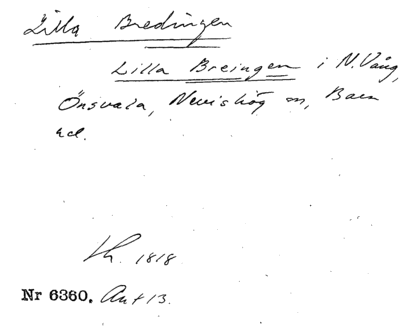 Lilla Bredingen
Lilla Breingen i N. Vång,
Önsvala, Nevishög m, Bara
hd.
Lh. 1818
Nr 6360. Ant 13.